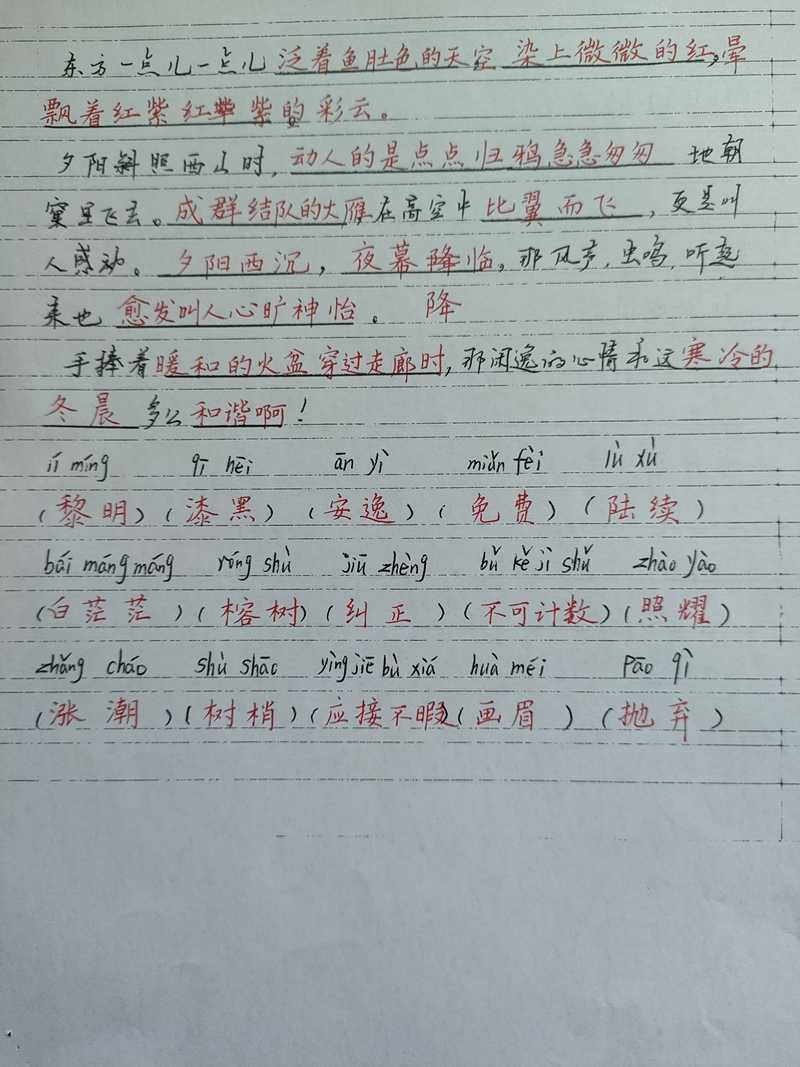 东方一点儿一点儿泛着鱼肚色的天空 染上微微的红晕,
飘着红紫红紫的彩云。
夕阳斜照西山时,动人的是点点归鸦急急匆匆 地朝
窠里飞去。成群结队的大雁在高空中比翼而飞,更是叫
人感动。夕阳西沉,夜幕降临,那风声,虫鸣,听起
来也愈发叫人心旷神怡。 降
手捧着暖和的火盆穿过走廊时,那闲逸的心情和这寒冷的
冬晨多么和谐啊!
lí míng qī hēi ān yì miǎn fèi lù xù
(黎明)(漆黑)(安逸)(免费)(陆续)
bái máng máng róng shù jiū zhèng bǔ kě jì shǔ zhào yào
(白茫茫)(榕树)(纠正)(不可计数)(照耀)
zhǎng cháo shù shāo yìng jiē bù xiá huà méi pāo qì
(涨潮)(树梢)(应接不暇)(画眉)(抛弃)